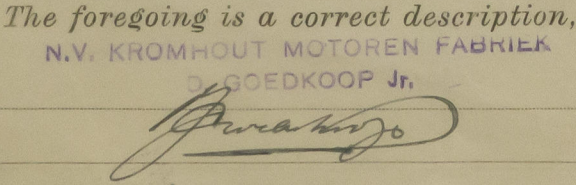 The foregoing is a correct description,
N.V. KROMHOUT MOTOREN FABRIEK
D. GOEDKOOP Jr.